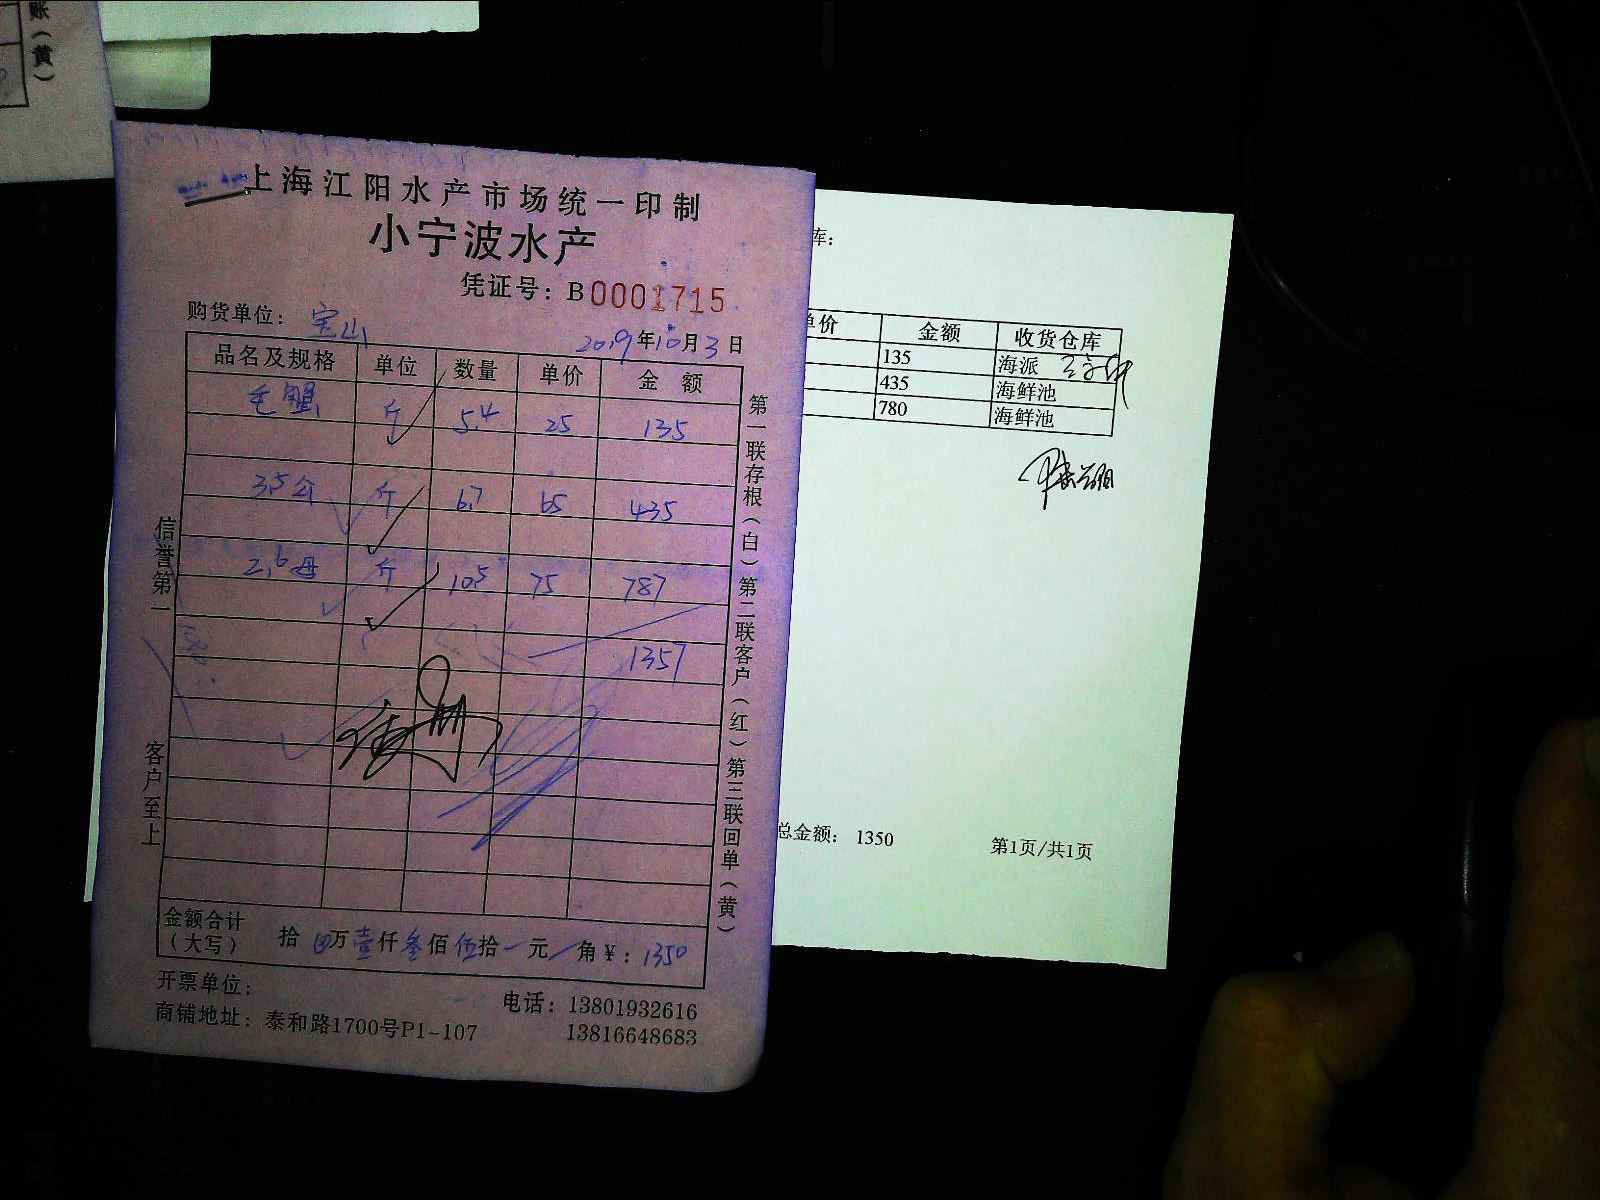 账(黄)
上海江阳水产市场统一印制
小宁波水产
凭证号：B0001715
购货单位：宝山
2019年10月3日
品名及规格 单位 数量 单价 金 额
毛蟹 斤 5.4 25 135
3.5公 斤 6.7 65 435
2.6母 斤 10.5 75 787
1357
金额合计（大写） 拾 万壹仟叁佰伍拾 元 角￥：1350
开票单位：
电话：13801932616
商铺地址：泰和路1700号P1-107
13816648683
信誉第一
客户至上
第一联存根（白）第二联客户（红）第三联回单（黄）
库：
单价 金额 收货仓库
135 海派
435 海鲜池
780 海鲜池
总金额： 1350 第1页/共1页